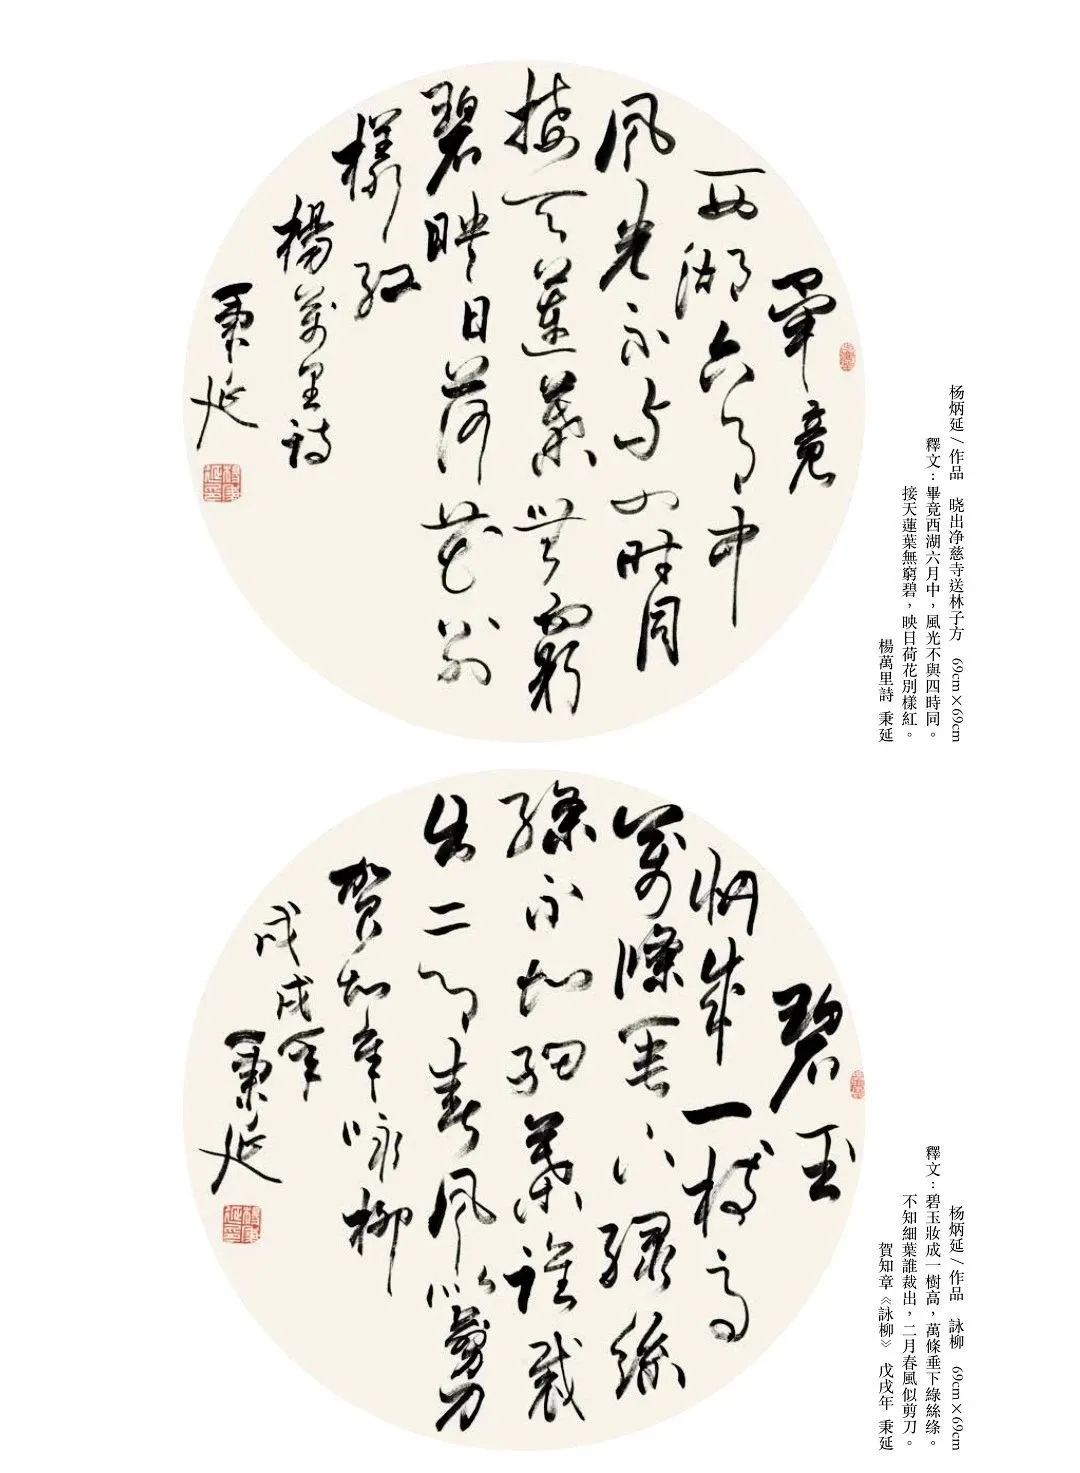 杨炳延/作品 晓出净慈寺送林子方 69cm×69cm
釋文：畢竟西湖六月中，風光不與四時同。
接天蓮葉無窮碧，映日荷花別樣紅。
楊萬里詩 秉延
畢竟
西湖六月中
風光不與四時同
接天蓮葉無窮
碧映日荷花別
樣紅
楊萬里詩
秉延
杨炳延/作品 詠柳 69cm×69cm
釋文：碧玉妝成一樹高，萬條垂下綠絲绦。
不知細葉誰裁出，二月春風似剪刀。
賀知章《詠柳》 戊戌年 秉延
碧玉
妝成一樹高
萬條垂下綠絲
絛不知細葉誰裁
出二月春風似剪刀
賀知章詠柳
戊戌年
秉延